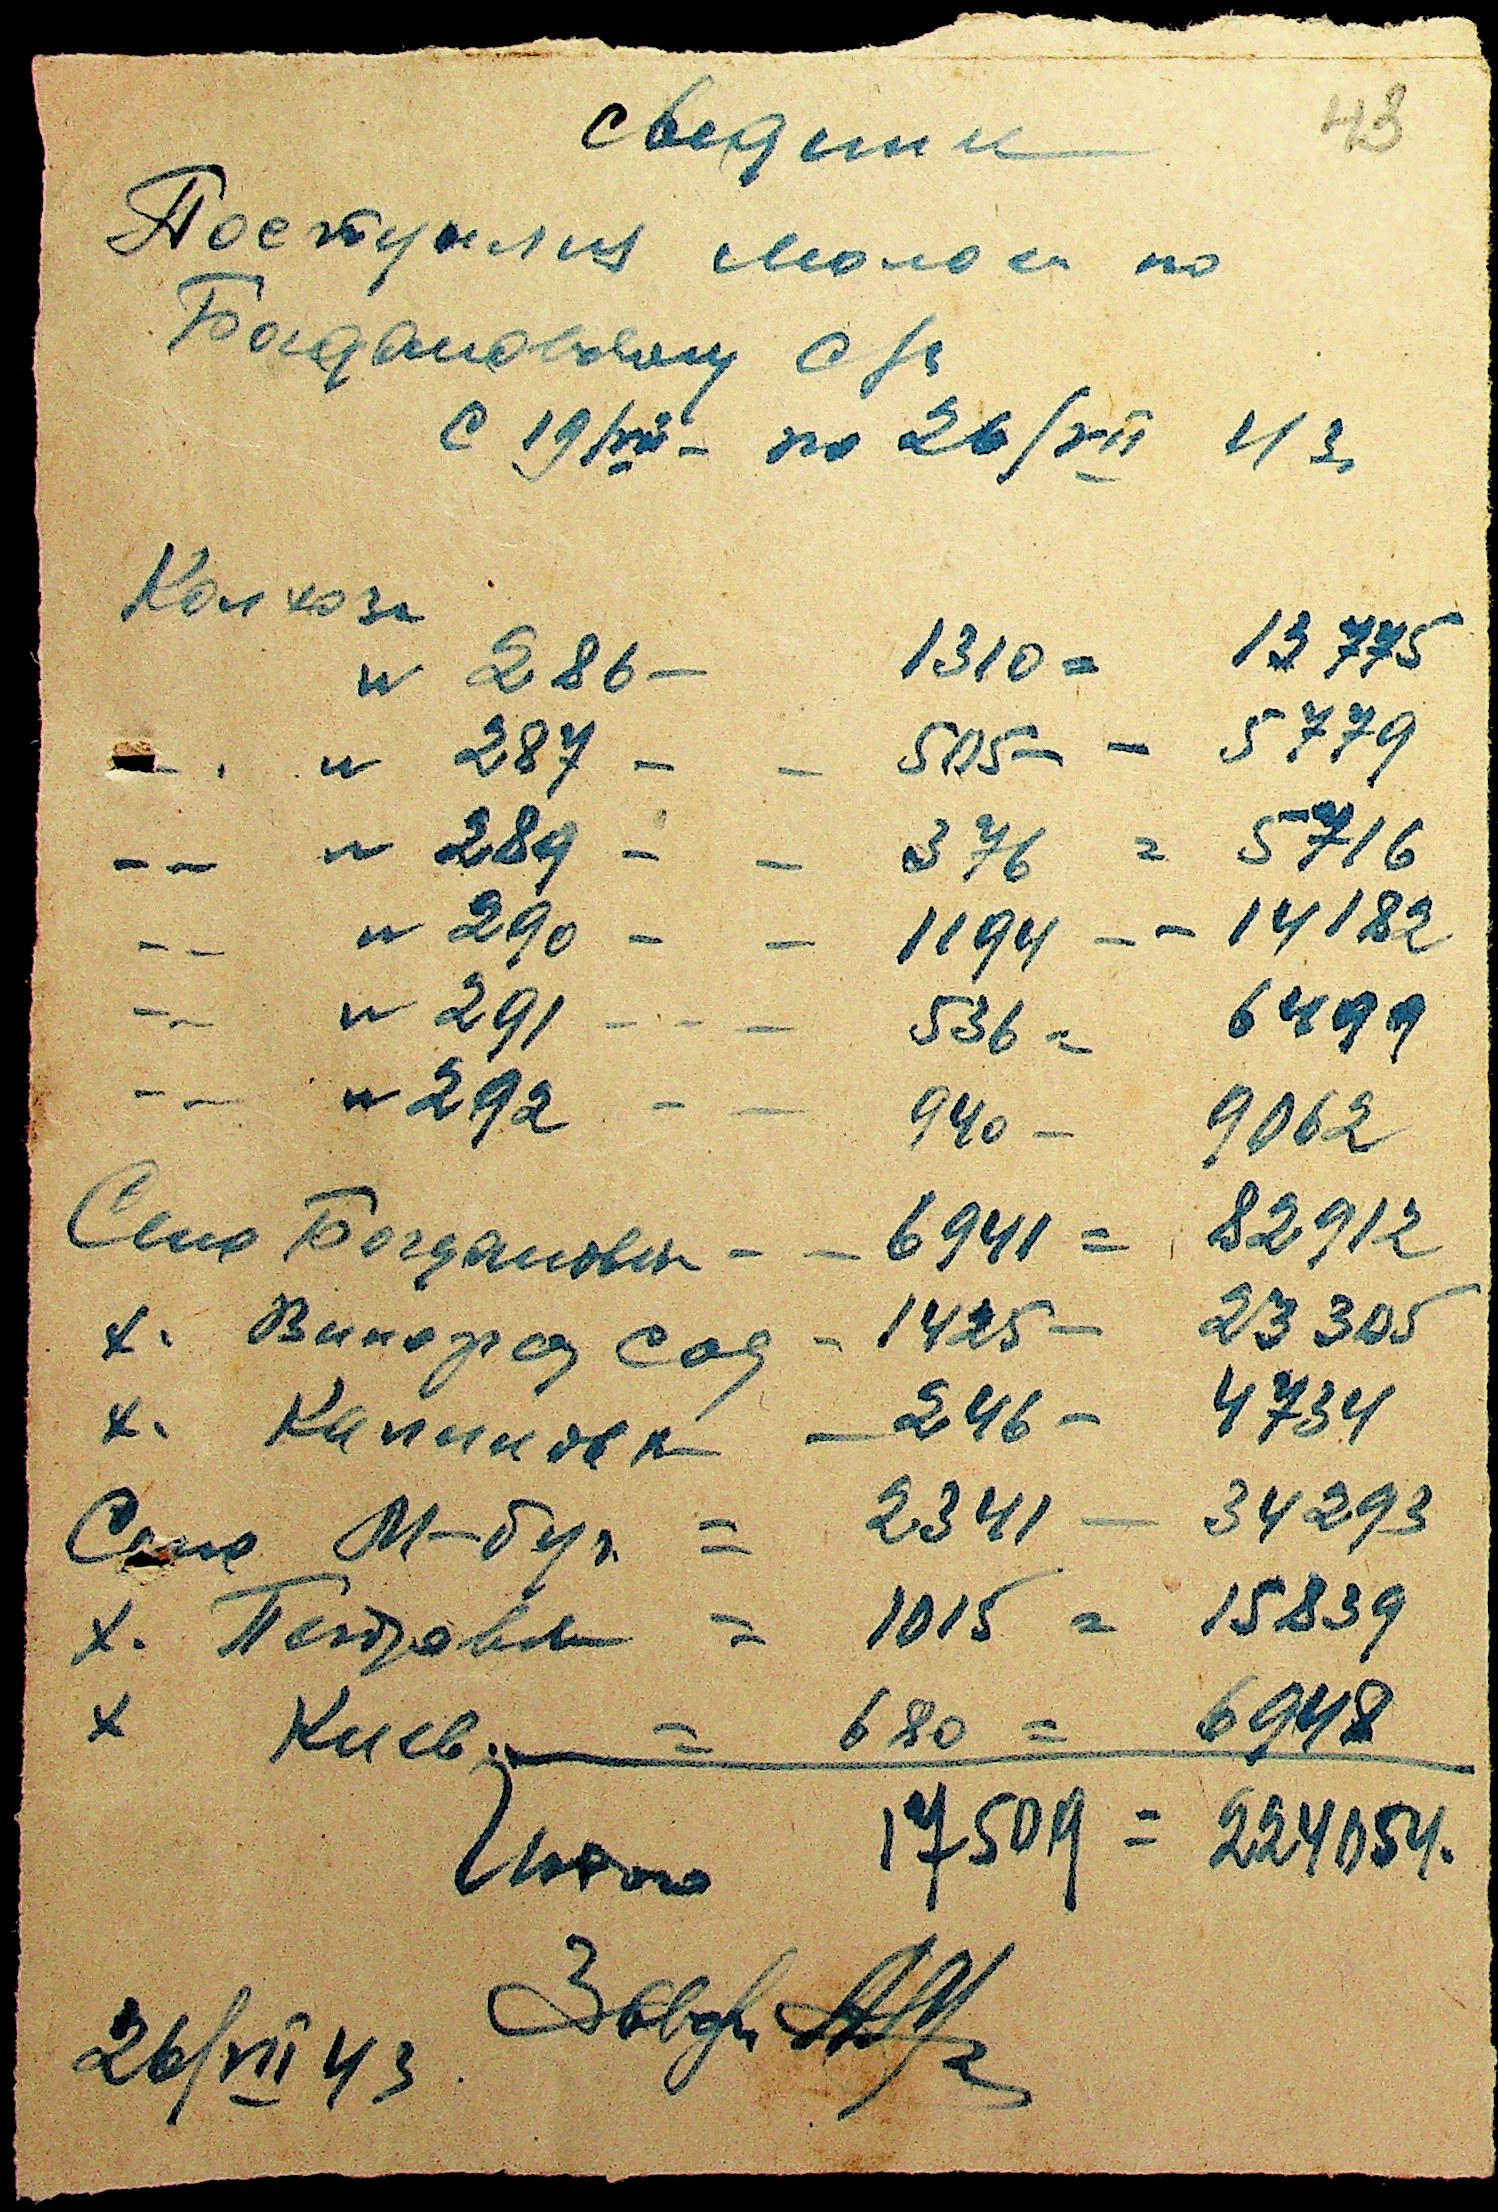 43
Сведения
Поступления молока по
Богдановскому с/с
с 19/VII - по 26/VII 43
Колхоза
н 286 - 1310 = 13775
- . н 287 - - 505 - - 5779
- - н 289 - - 376 = 5716
- - н 290 - - 1194 - - 14182
- - н 291 - - - 536 = 6499
- - н 292 - - 940 - 9062
Село Богдановка - - 6941 = 82912
х. Виноград сад - 1425 - 23305
х. Калиновка - 246 - 4734
Село М-буг. = 2341 - 34293
х. Петровка = 1015 = 15839
х Киев. = 680 = 6948
Итого 17509 = 224054.
26/VII 43